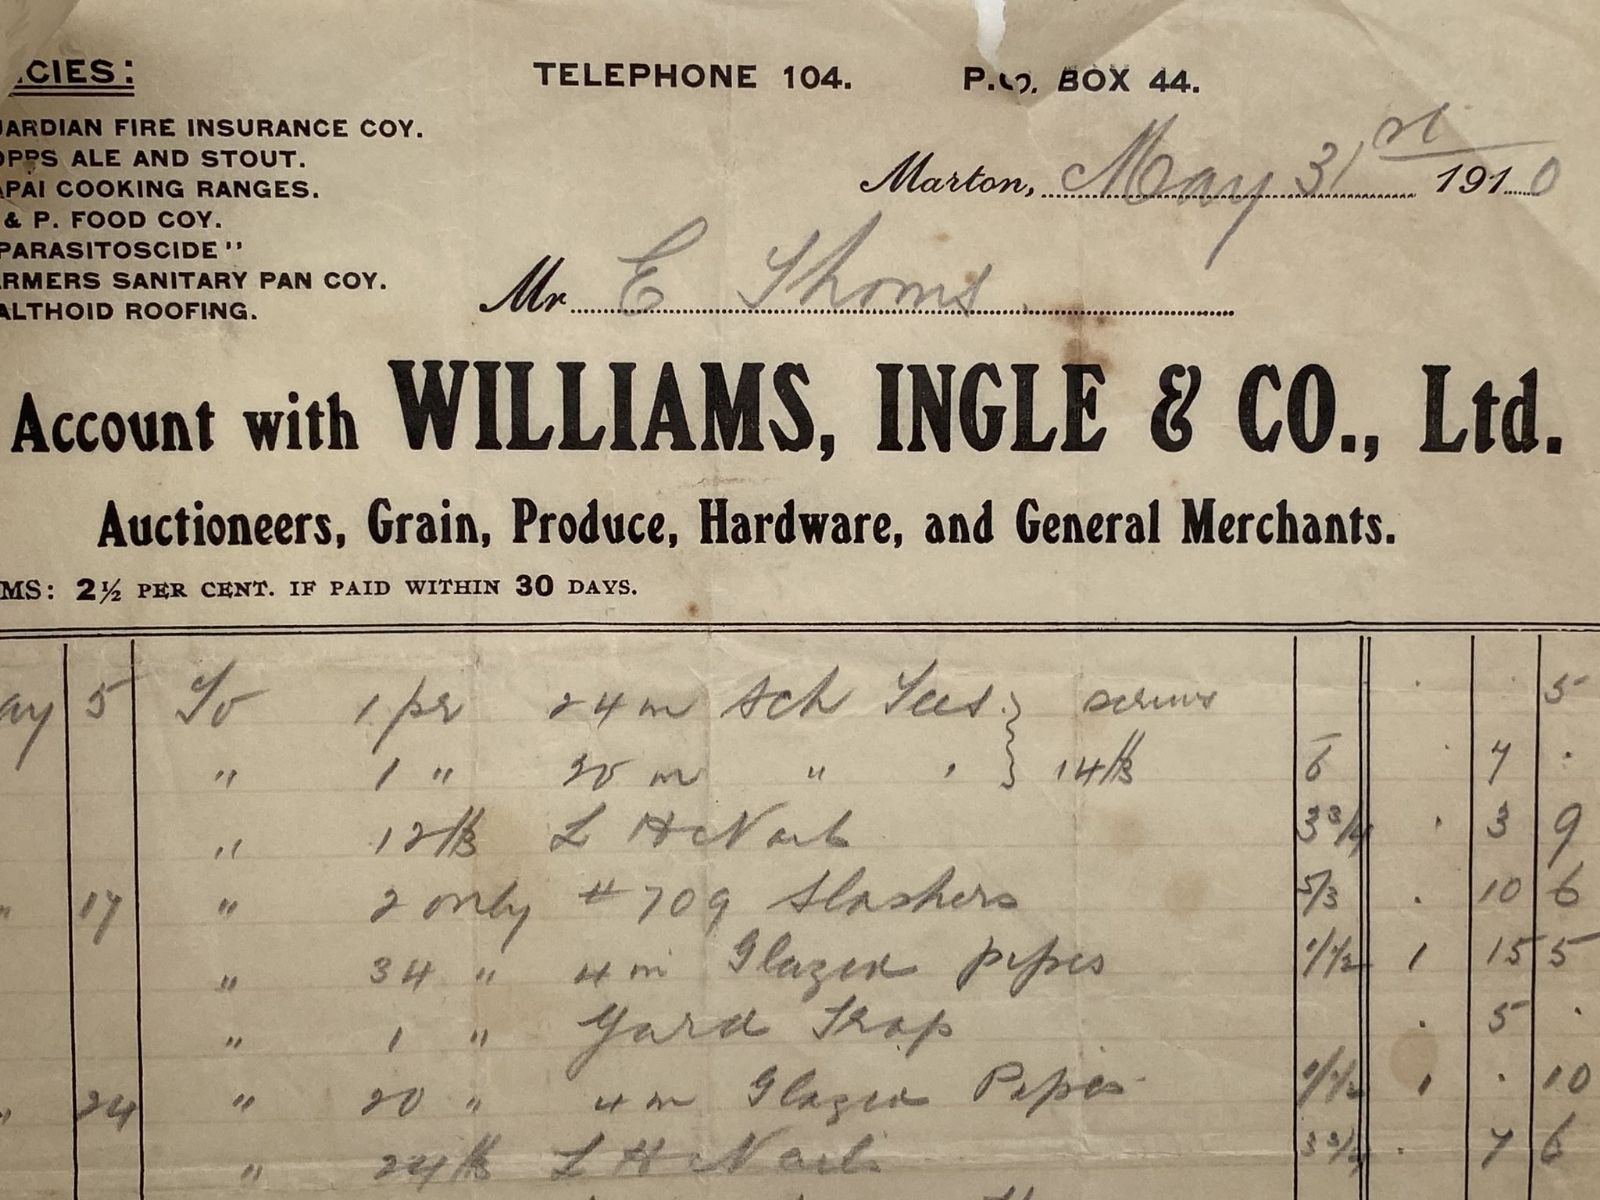 CIES:
TELEPHONE 104. P.O. BOX 44.
ARDIAN FIRE INSURANCE COY.
OPPS ALE AND STOUT.
APAI COOKING RANGES.
& P. FOOD COY.
PARASITOSCIDE"
ARMERS SANITARY PAN COY.
ALTHOID ROOFING.
Marton, May 31st 1910
Mr E Thoms
Account with WILLIAMS, INGLE & CO., Ltd.
Auctioneers, Grain, Produce, Hardware, and General Merchants.
MS: 2½ PER CENT. IF PAID WITHIN 30 DAYS.
ay 5 To 1 pr 24 in Sch Tees } screws 5
" 1 " 20 in " } 14 lb 6 7 .
" 12 lb L H Nails 3 3/4 . 3 9
" 17 " 2 only # 709 Slashers 5/3 . 10 6
" 34 " 4 in Glazed pipes 1/1½ 1 15 5
" 1 " Yard Trap . 5 .
" 24 " 20 " 4 in Glazed Pipes 1/½ 1 . 10
" 24 lb L H Nails 3 3/4 . 7 6